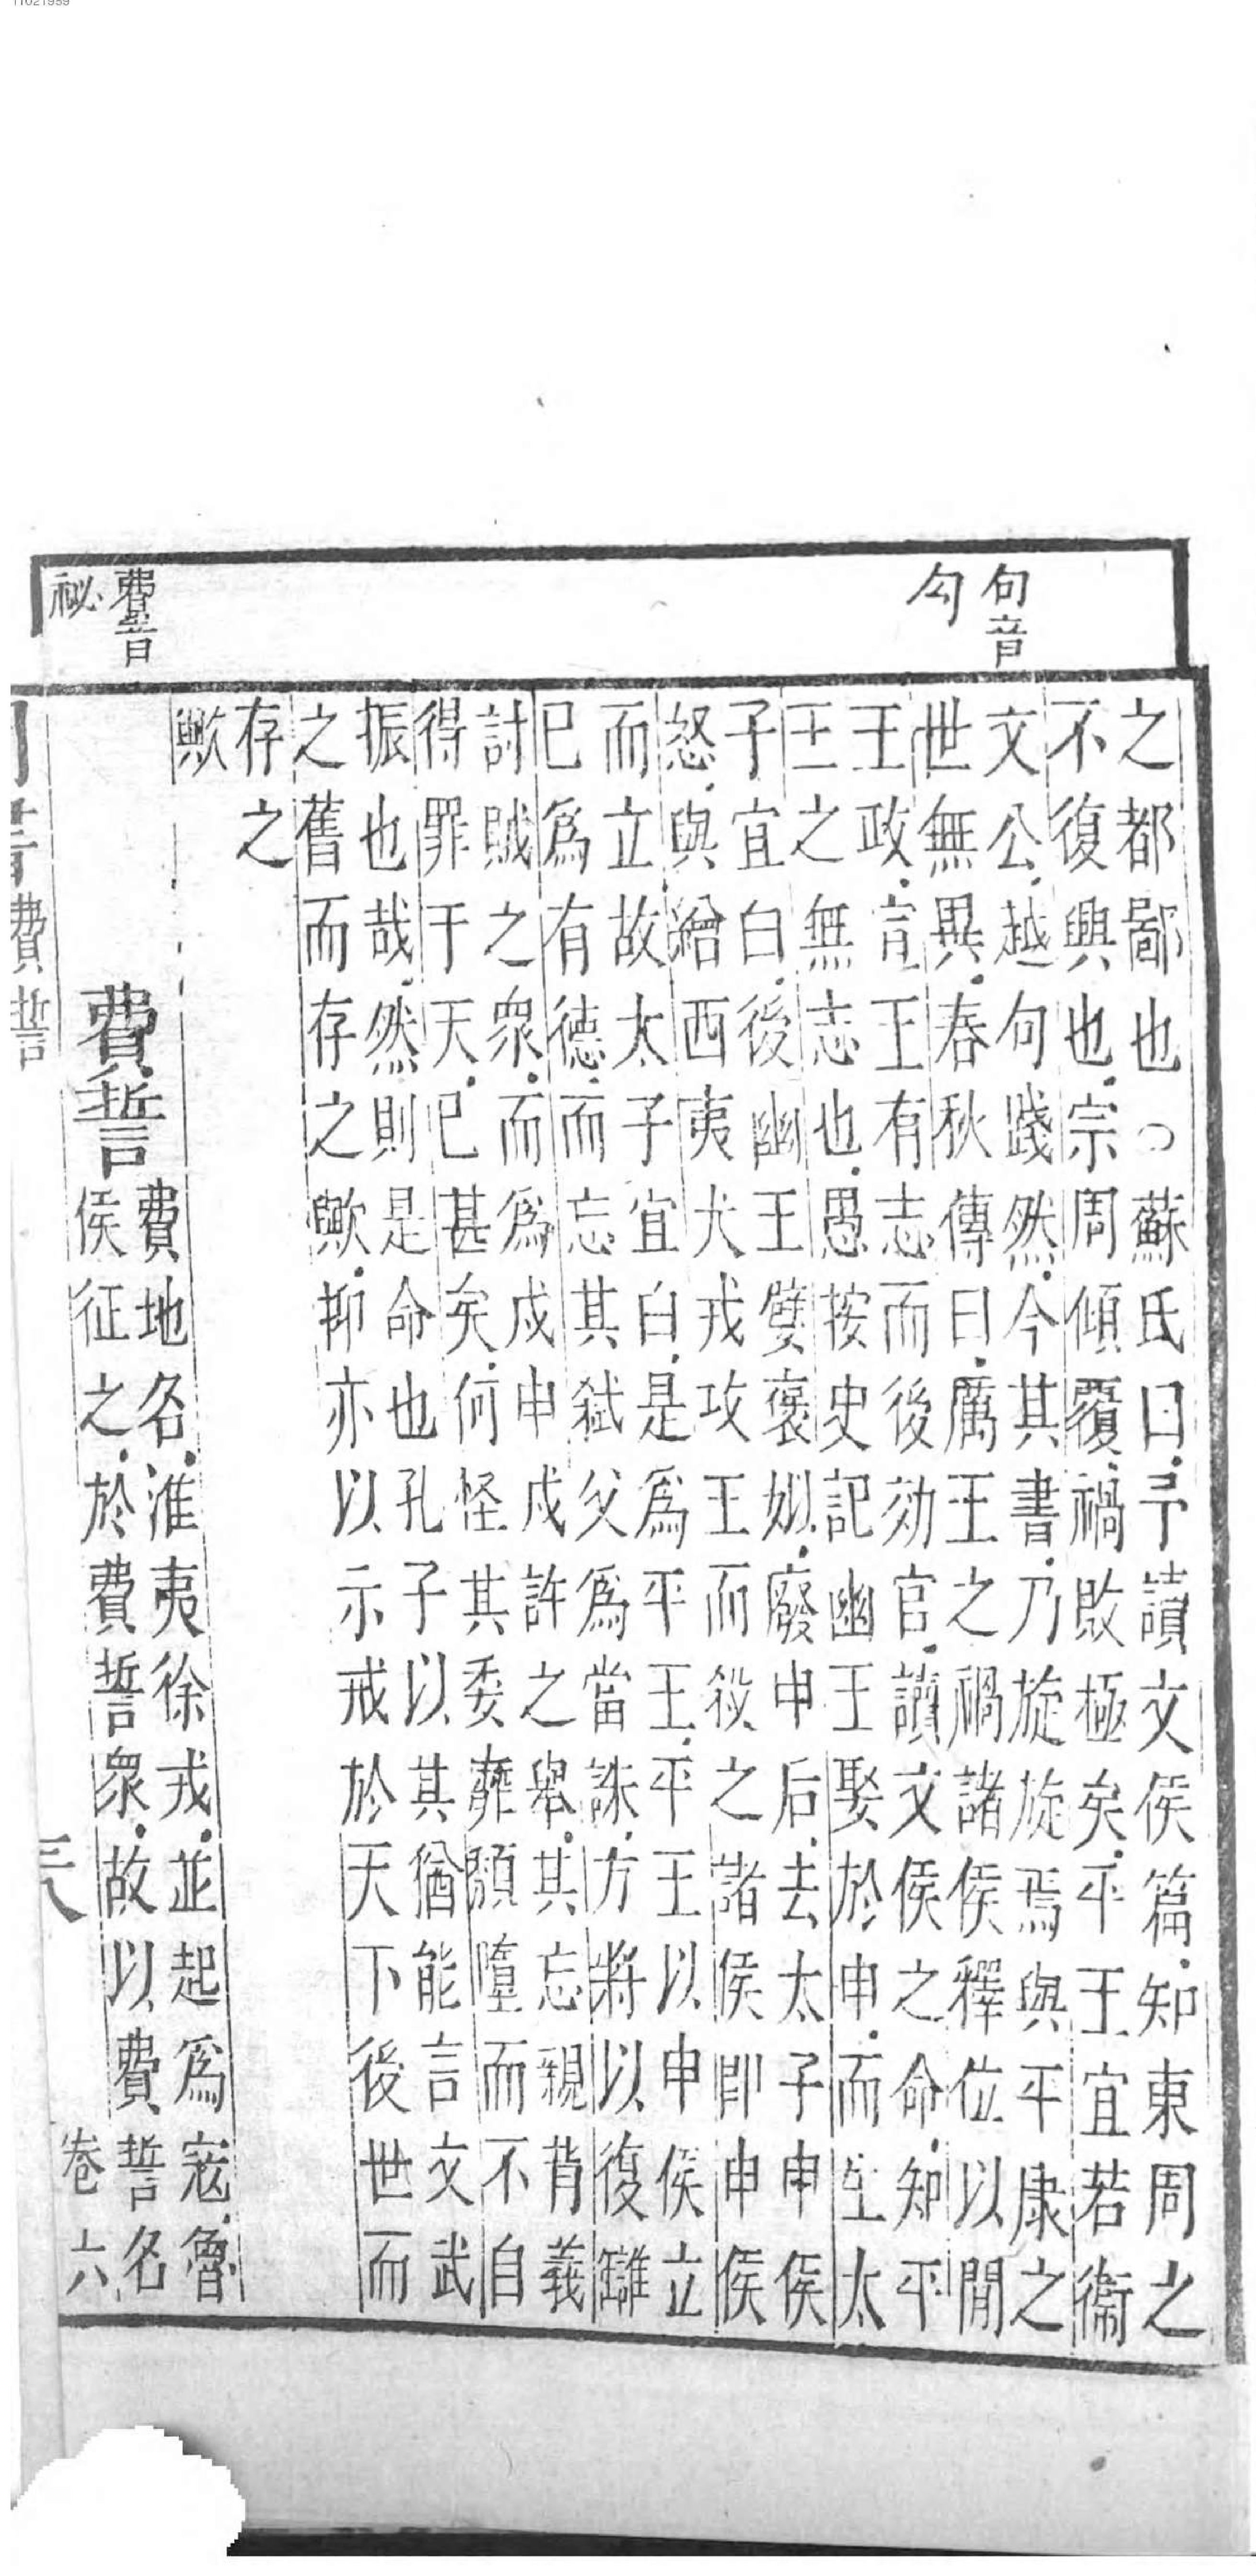 11021959
句音
勾
費音
祕
之都鄙也○蘇氏曰予讀文侯篇知東周之
不復興也宗周傾覆禍敗極矣平王宜若衞
文公越句踐然今其書乃旋旋焉與平康之
世無異春秋傳曰厲王之禍諸侯釋位以閒
王政宣王有志而後効官讀文侯之命知平
王之無志也愚按史記幽王娶於申而生太
子宜白後幽王嬖褒姒廢申后去太子申侯
怒與繒西夷犬戎攻王而殺之諸侯即申侯
而立故太子宜白是爲平王平王以申侯立
已爲有德而忘其弒父爲當誅方將以復讎
討賊之衆而爲戍申戍許之舉其忘親背義
得罪于天已甚矣何怪其委靡頹墮而不自
振也哉然則是命也孔子以其猶能言文武
之舊而存之歟抑亦以示戒於天下後世而
存之
歟
費誓
費地名淮夷徐戎並起爲寇魯
侯征之於費誓衆故以費誓名
費誓
三八
卷六